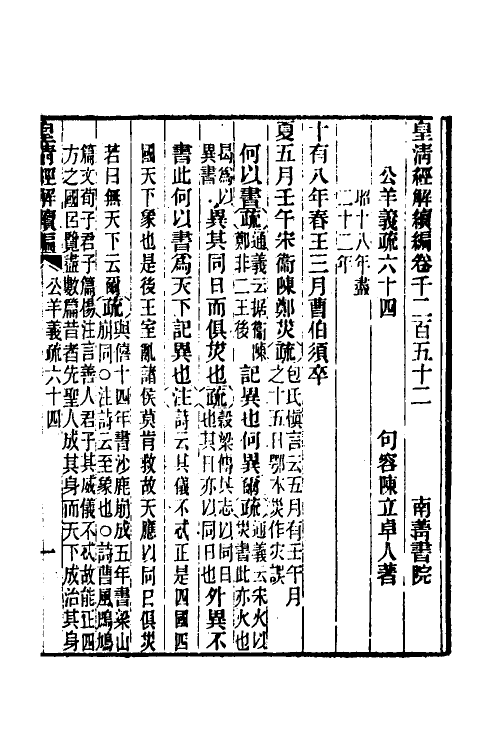 皇清經解續編卷千二百五十二
南菁書院
公羊義疏六十四
句容陳立卓人著
昭十八年盡
二十二年
十有八年春王三月曹伯須卒
夏五月壬午宋衞陳鄭災疏包氏愼言云五月有壬午月
之十五日鄂本災作灾誤
何以書疏通義云据衞陳
鄭非二王後
記異也何異爾疏通義云宋火以
災書此亦火也
曷爲以
異書
異其同日而俱災也疏穀梁傳其志以同日
也其日亦以同日也
外異不
書此何以書爲天下記異也注詩云其儀不忒正是四國四
國天下象也是後王室亂諸侯莫肯救故天應以同日俱災
若曰無天下云爾疏與僖十四年書沙鹿崩成五年書梁山
崩同○注詩云至象也○詩曹風鳲鳩
篇文荀子君子篇楊注言善人君子其威儀不忒故能正四
方之國呂覽盡數篇昔者先聖人成其身而天下成治其身
皇清經解續編
公羊義疏六十四
一